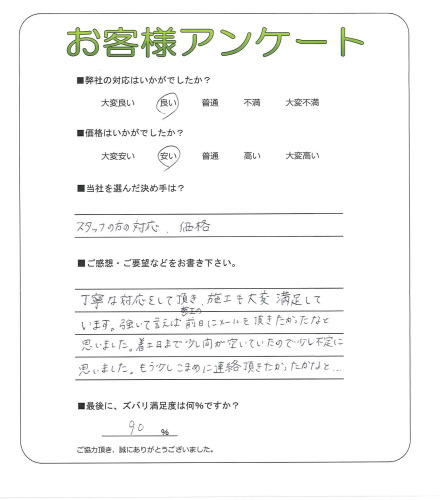 お客様アンケート
■弊社の対応はいかがでしたか？
大変良い 良い 普通 不満 大変不満
■価格はいかがでしたか？
大変安い 安い 普通 高い 大変高い
■当社を選んだ決め手は？
スタッフの方の対応、価格
■ご感想・ご要望などをお書き下さい。
丁寧な対応をして頂き、施工も大変満足して
います。強いて言えば着工の前日にメールを頂きたかったなと
思いました。着工日まで少し間が空いていたので少し不安に
思いました。もう少しこまめに連絡頂きたかったかなと…
■最後に、ズバリ満足度は何％ですか？
90 %
ご協力頂き、誠にありがとうございました。